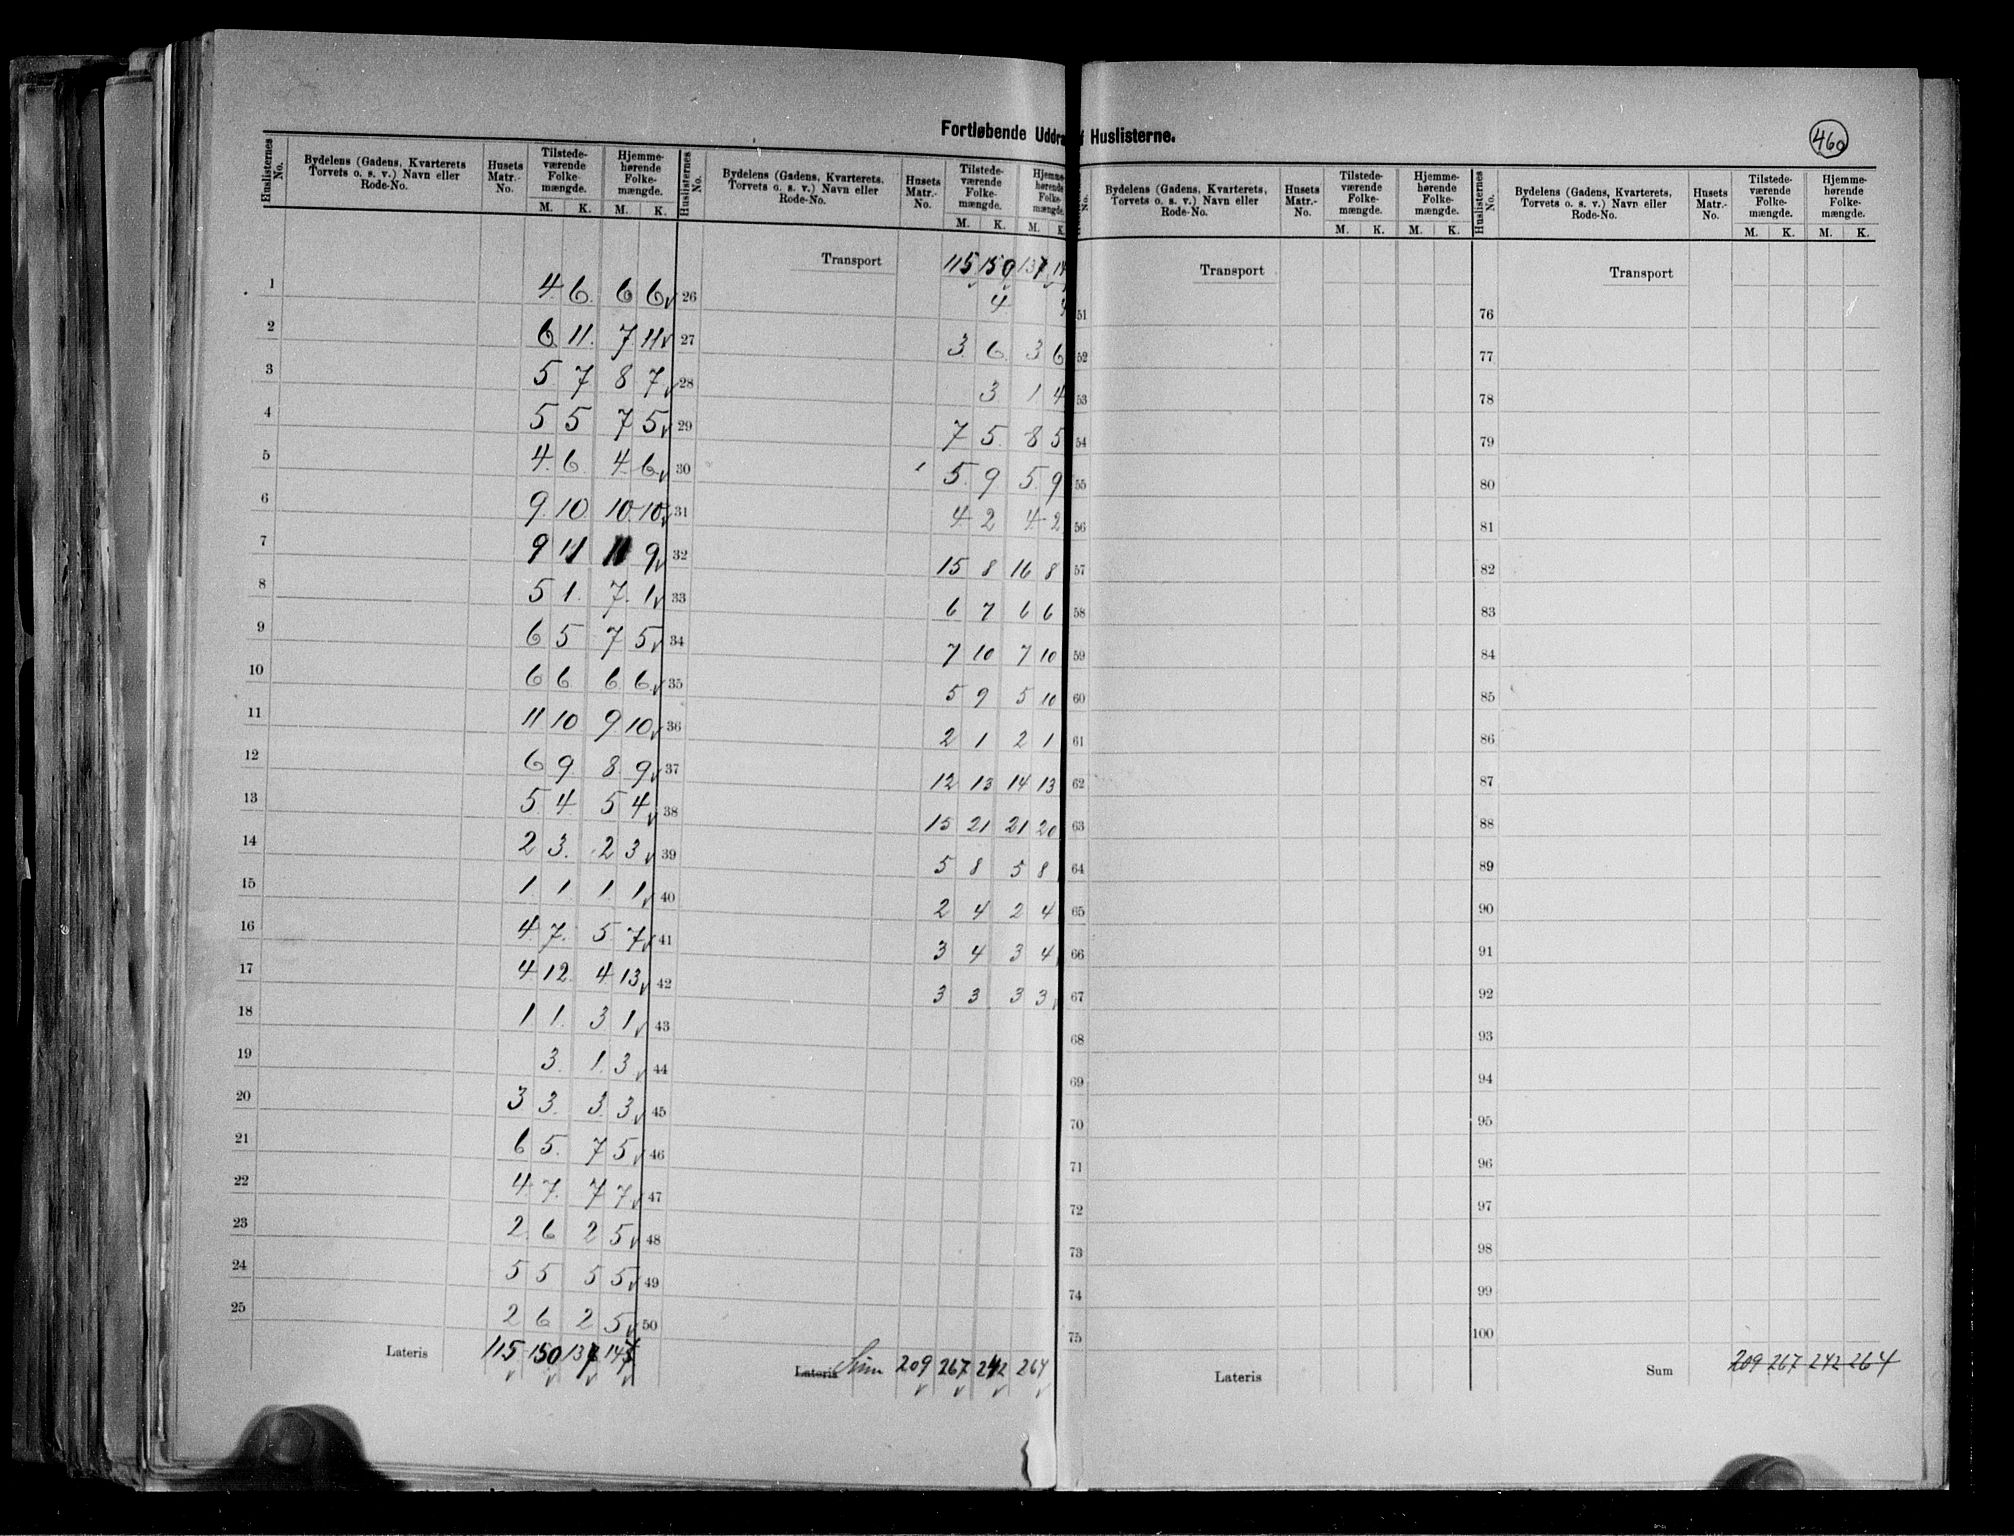 Fortløbende Uddra f Huslisterne.
460
Huslisternes No. | Bydelens (Gadens, Kvarterets Torvets o. s. v.) Navn eller Rode-No. | Husets Matr.-No. | Tilstedeværende Folkemængde. M. K. | Hjemmehørende Folkemængde. M. K.
1 4 6 6 6
2 6 11 7 11
3 5 7 8 7
4 5 5 7 5
5 4 6 4 6
6 9 10 10 10
7 9 11 11 9
8 5 1 7 1
9 6 5 7 5
10 6 6 6 6
11 11 10 9 10
12 6 9 8 9
13 5 4 5 4
14 2 3 2 3
15 1 1 1 1
16 4 7 5 7
17 4 12 4 13
18 1 1 3 1
19 3 1 3
20 3 3 3 3
21 6 5 7 5
22 4 7 7 7
23 2 6 2 5
24 5 5 5 5
25 2 6 2 5
Lateris 115 150 137 145
Huslisternes No. | Bydelens (Gadens, Kvarterets, Torvets o. s. v.) Navn eller Rode-No. | Husets Matr.-No. | Tilstedeværende Folkemængde. M. K. | Hjemmehørende Folkemængde. M. K.
Transport 115 150 137 14
26 4
27 3 6 3 6
28 3 1 4
29 7 5 8 5
30 5 9 5 9
31 4 2 4 2
32 15 8 16 8
33 6 7 6 6
34 7 10 7 10
35 5 9 5 10
36 2 1 2 1
37 12 13 14 13
38 15 21 21 20
39 5 8 5 8
40 2 4 2 4
41 3 4 3 4
42 3 3 3 3
43
44
45
46
47
48
49
50
Lateris Sum 209 267 242 264
No. | Bydelens (Gadens, Kvarterets, Torvets o. s. v.) Navn eller Rode-No. | Husets Matr.-No. | Tilstedeværende Folkemængde. M. K. | Hjemmehørende Folkemængde. M. K.
Transport
51
52
53
54
55
56
57
58
59
60
61
62
63
64
65
66
67
68
69
70
71
72
73
74
75
Lateris
Huslisternes No. | Bydelens (Gadens, Kvarterets, Torvets o. s. v.) Navn eller Rode-No. | Husets Matr.-No. | Tilstedeværende Folkemængde. M. K. | Hjemmehørende Folkemængde. M. K.
Transport
76
77
78
79
80
81
82
83
84
85
86
87
88
89
90
91
92
93
94
95
96
97
98
99
100
Sum 209 267 242 264